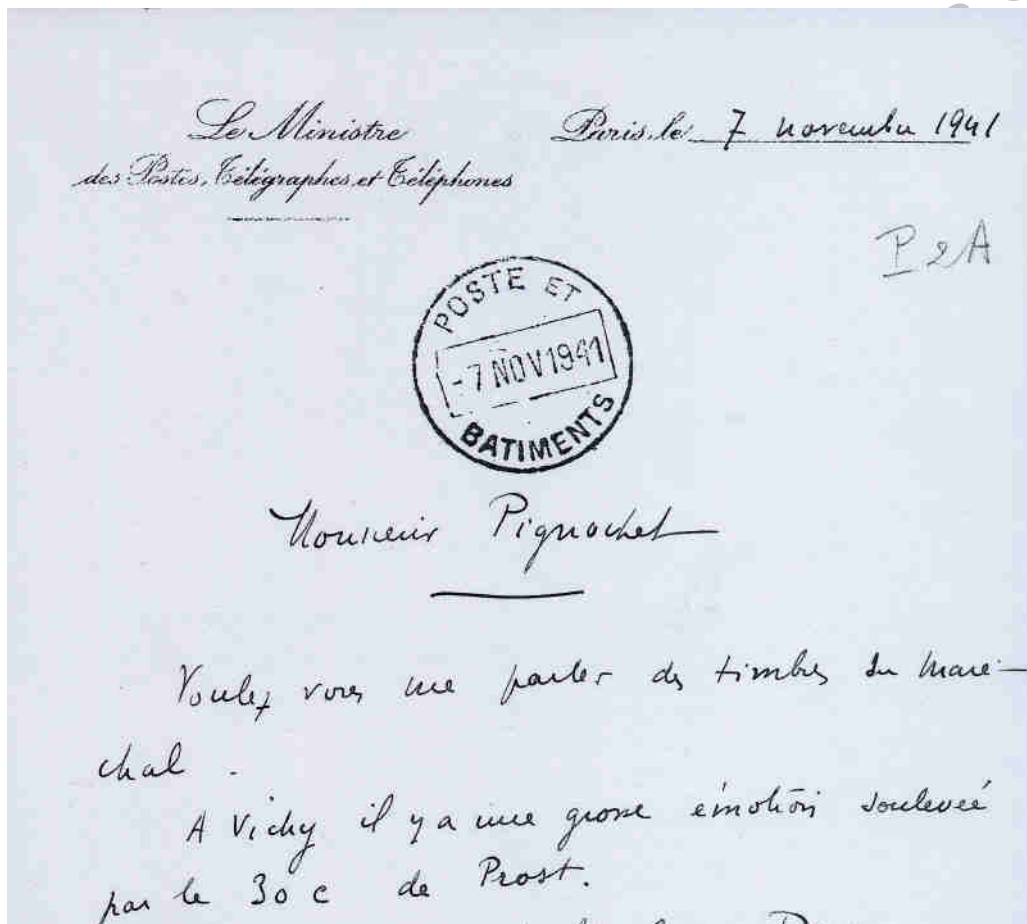 Le Ministre
des Postes, Télégraphes et Téléphones
Paris, le 7 novembre 1941
P 2 A
POSTE ET
-7 NOV 1941
BATIMENTS
Monsieur Pignochet
Voulez vous me parler des timbres du Maré-
chal.
A Vichy il y a une grosse émotion soulevée
par le 30 c de Prost.